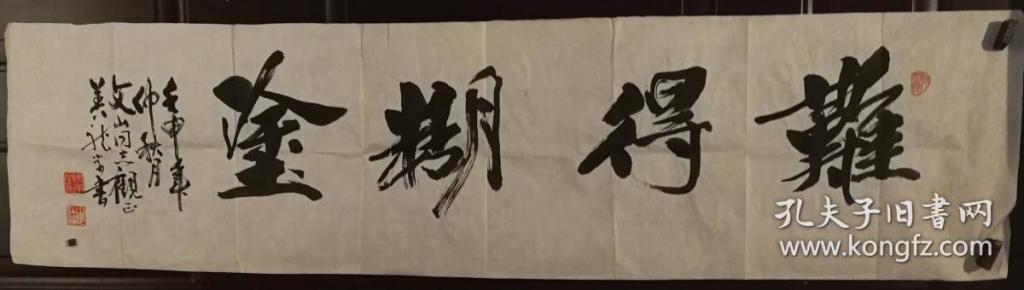 難得糊塗
壬申年
仲秋月
文尚志觀正
书
孔夫子旧书网
www.kongfz.com